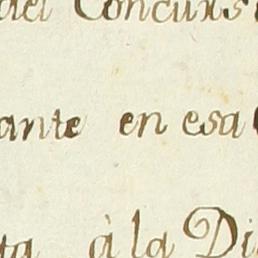 del Concurs
ante en esa
ta à la Di